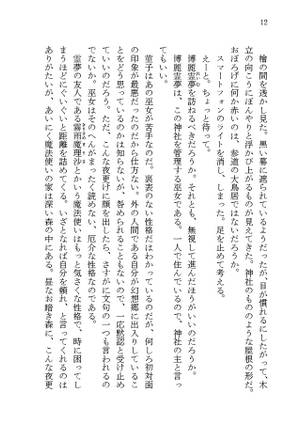 12
檜の間を透かし見た。黒い幕に遮られているようだったが、目が慣れるにしたがって、木
立の向こうにぼんやりと浮かび上がるものが見えてきた。神社のもののような屋根の形だ。
おぼろげに何か赤いのは、参道の大鳥居ではないだろうか。
スマートフォンのライトを消し、しまった。足を止めて考える。
えーと。ちょっと待って。
博麗霊夢を訪ねるべきだろうか。それとも、無視して進んだほうがいいのだろうか。
博麗霊夢は、この神社を管理する巫女である。一人で住んでいるので、神社の主と言っ
てもいい。
菫子はあの巫女が苦手なのだ。裏表のない性格だとはわかっているのだが、何しろ初対面
の印象が最悪だったのだから仕方ない。外の人間である自分が幻想郷に出入りしているこ
とをどう思っているのかは知らないが、咎められることもないので、一応黙認と受け止め
ていいのだろう。ただ、こんな夜更けに顔を出したら、さすがに文句の一つも言われるの
でないか。巫女はそのへんがまったく読めない、厄介な性格なのである。
霊夢の友人である霧雨魔理沙とかいう魔法使いはもっと気さくな性格で、時に困ってし
まうほどにぐいぐいと距離を詰めてくる。いざとなれば自分を頼れ、と言ってくれるのは
ありがたいが、あいにく魔法使いの家は深い森の中にある。昼なお暗き森に、こんな夜更